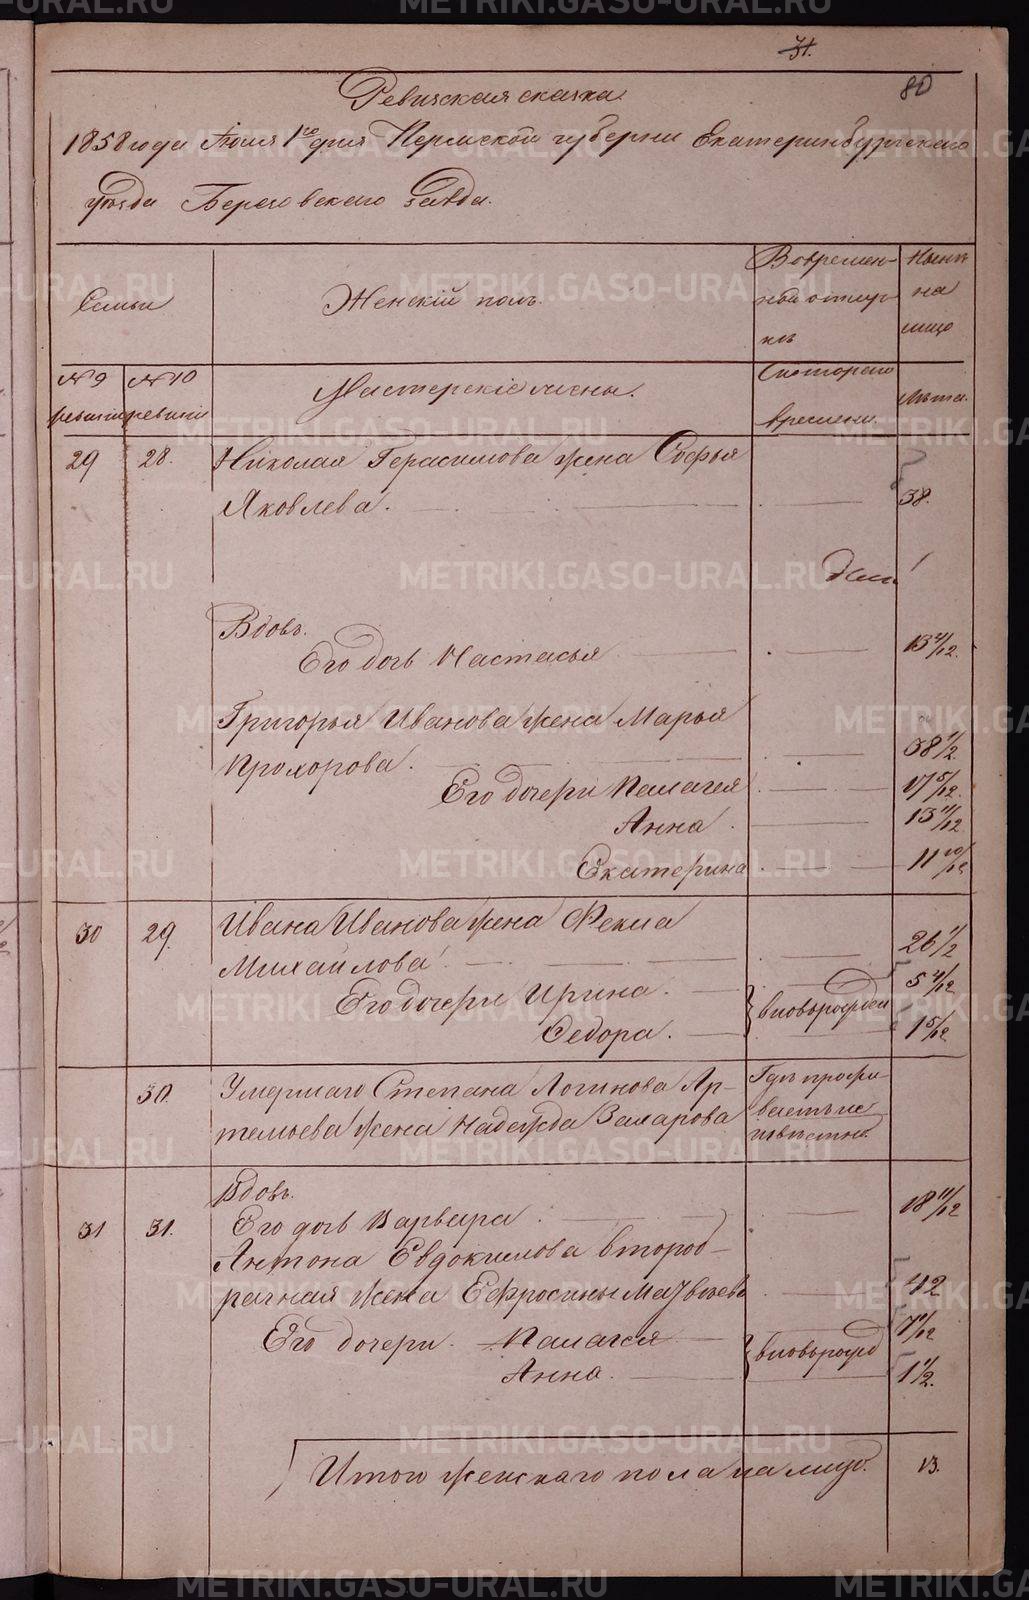 31.
80
Ревизская сказка.
1858 года Июня 1го дня Пермской губернии Екатеринбургскаго
уѣзда Березовскаго завода.
Семьи
Женскій полъ.
Во времен-
ной отлуч-
кѣ
Нынѣ
на
лицо
№ 9
ревизіи
№ 10
ревизіи
Мастерскіе жены.
Съ котораго
времени.
Лѣта.
29 28. Николая Герасимова жена Софья
Яковлева. 38.
Вдовъ.
Его дочь Настасья 13 4/12.
Григорья Иванова жена Марья
Прохорова. 38 1/2.
Его дочери Пелагея 17 5/12.
Анна. 13 11/12
Екатерина 11 10/12
30 29. Ивана Иванова жена Фекла
Михайлова. 26 1/2
Его дочери Ирина. 5 4/12
вновьрожден
Федора. 1 5/12
30. Умершаго Степана Логинова Ар-
темьева жена Надежда Захарова
Гдѣ прожи
ваетъ не
извѣстно.
Вдовъ.
31 31. Его дочь Варвара. 18 11/12
Антона Евдокимова второб-
рачная жена Ефросинья Матвѣева 42
Его дочери. Палагея 7/12
вновьрожд
Анна. 1 1/2.
Итого женскаго пола на лицо. 13.
METRIKI.GASO-URAL.RU